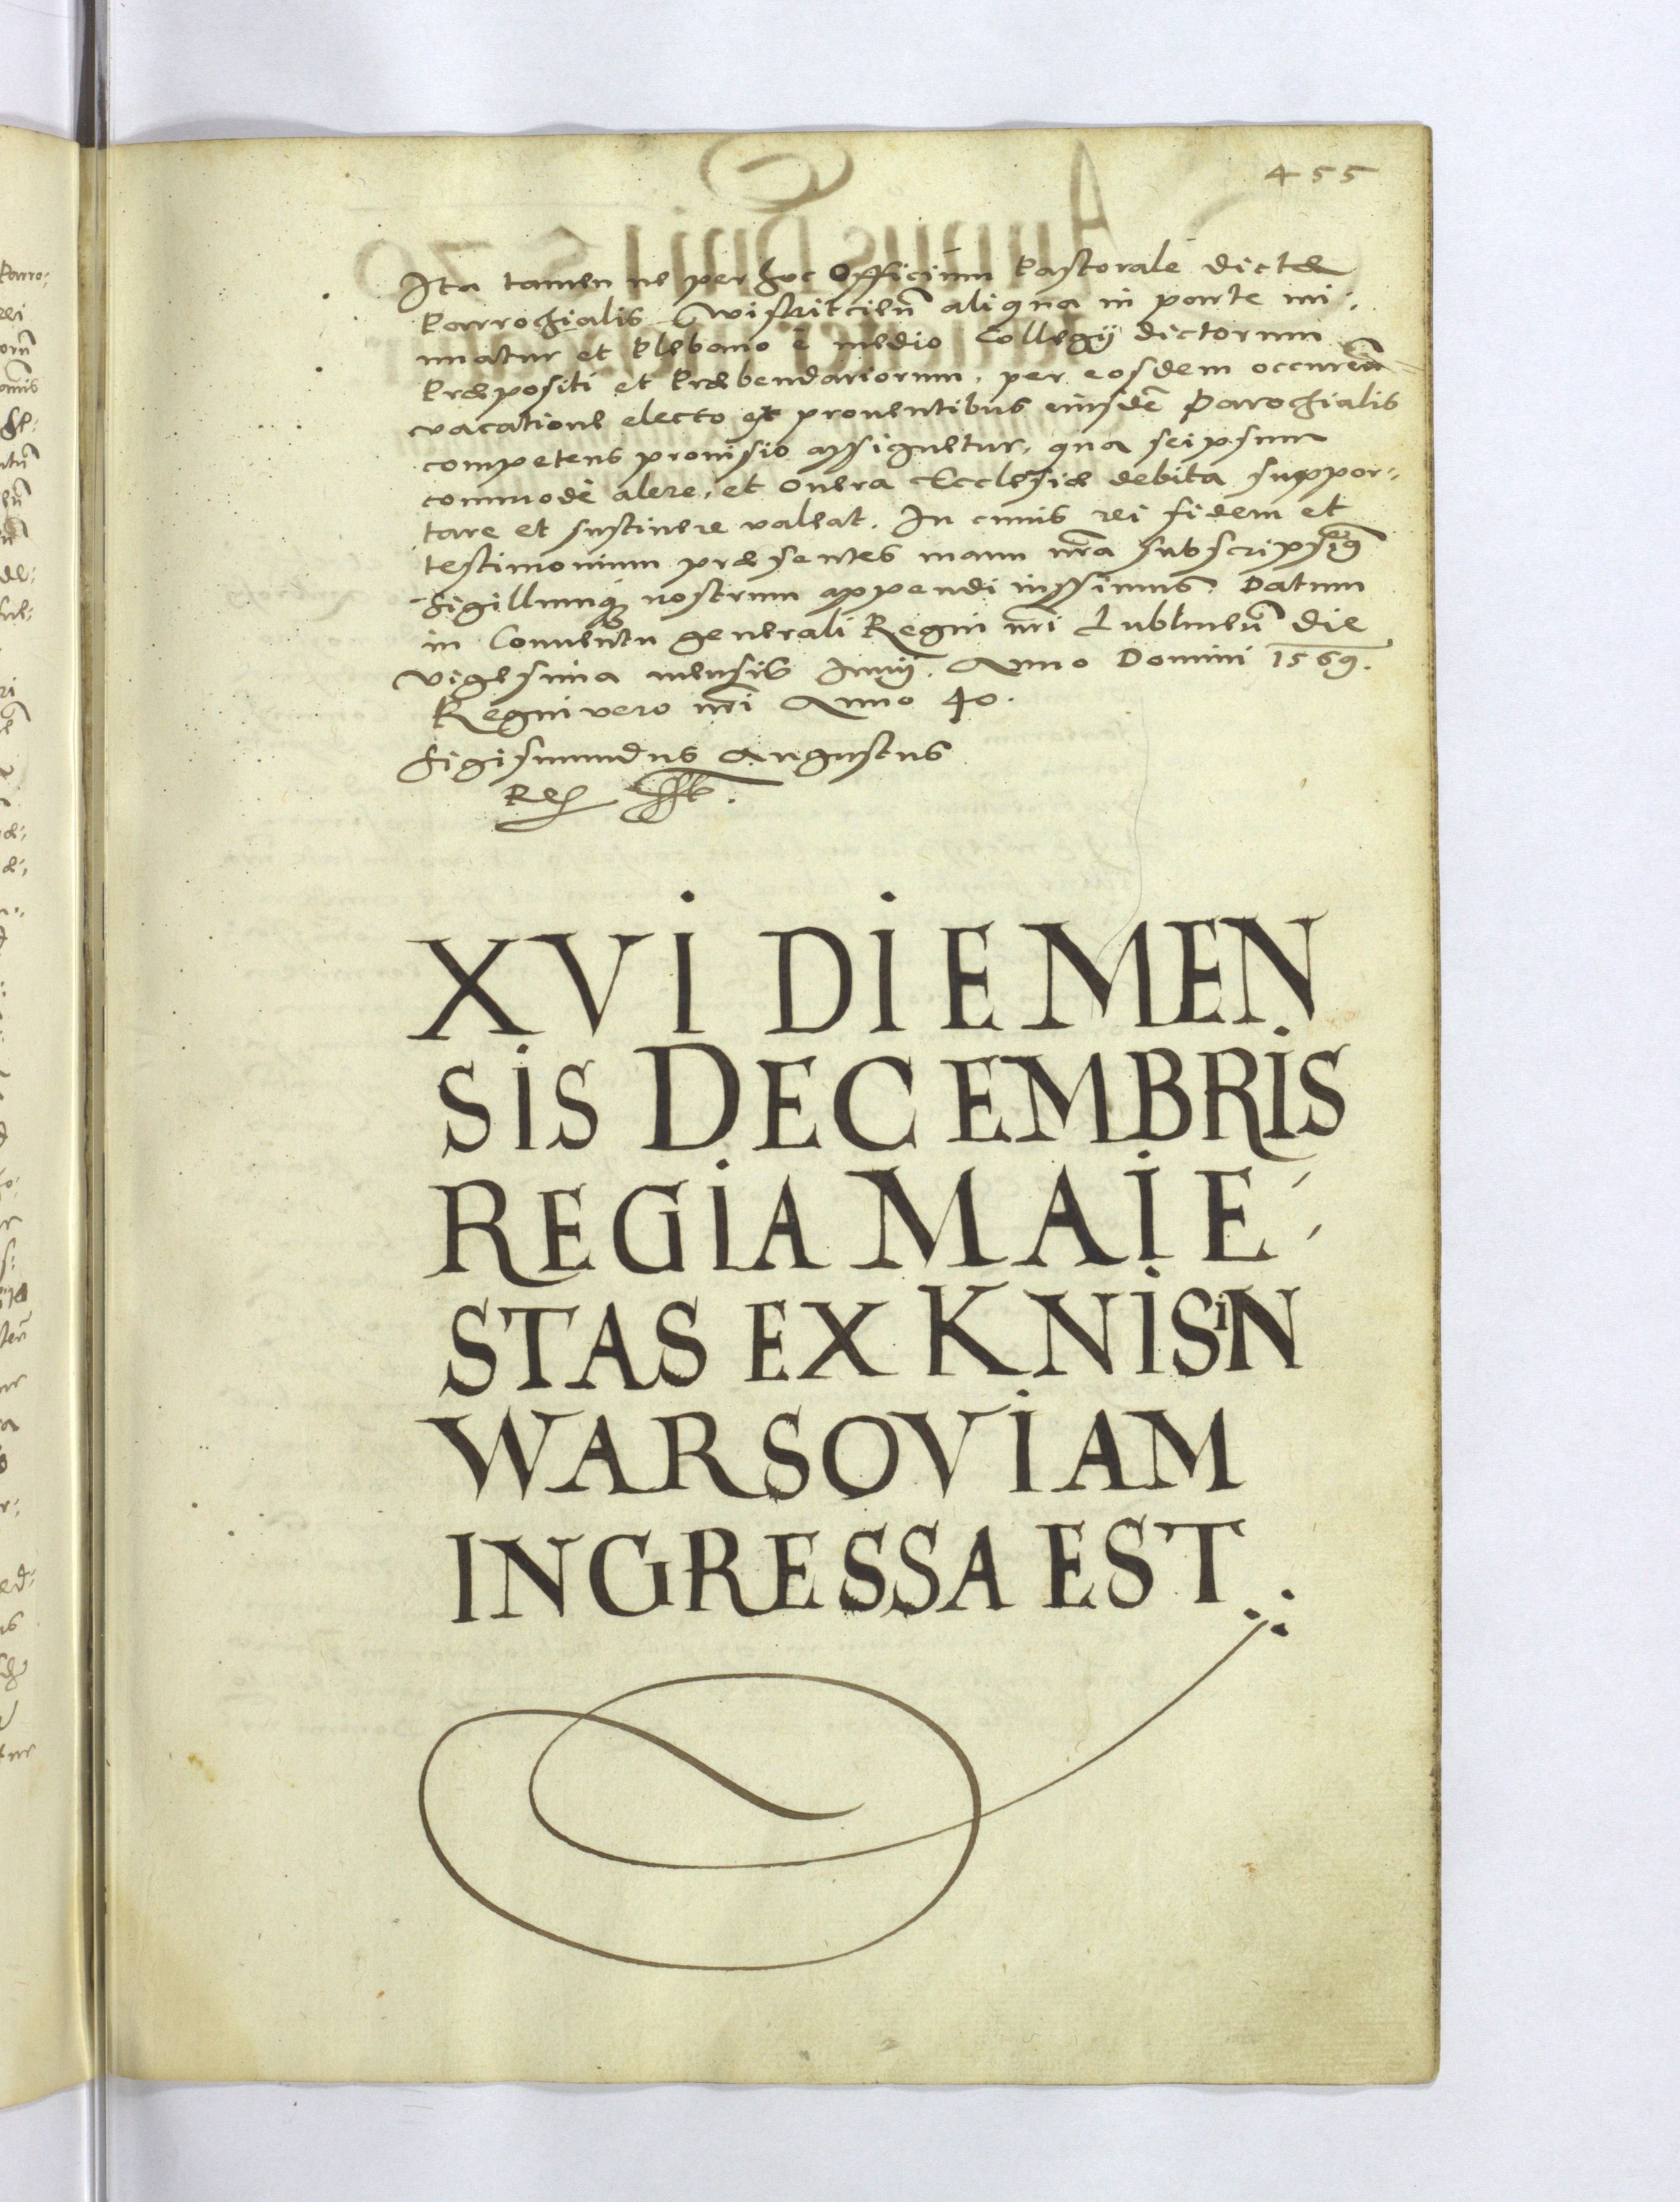 455
Ita tamen ne per hoc Officium Pastorale dictæ
Parrochialis Swistriciēn̄ aliqua in parte mi:
nuatur et Plebano è medio Collegÿ dictorum
Præpositi et Præbendariorum, per eosdem occurēn̄
vacatione electo ex prouentibus eiusdē Parochialis
competens prouisio assignetur, qua seipsum
commodè alere, et onera Ecclesiæ debita suppor:
tare et sustinere valeat. In cuius rei fidem et
testimonium præsentes manu nr̄a subscripsim9
Sigillumq3 nostrum appendi iussimus. Datum
in Conuentu generali Regni nr̄i Lublineñ die
vigesima mensis Iunÿ. Anno Domini 1569.
Regni vero nr̄i Anno 40.
Sigismundus Augustus
Rex sst.
XVI DIE MEN
SIS DECEMBRIS
REGIA MAIE
STAS EX KNISIN
WARSOVIAM
INGRESSA EST